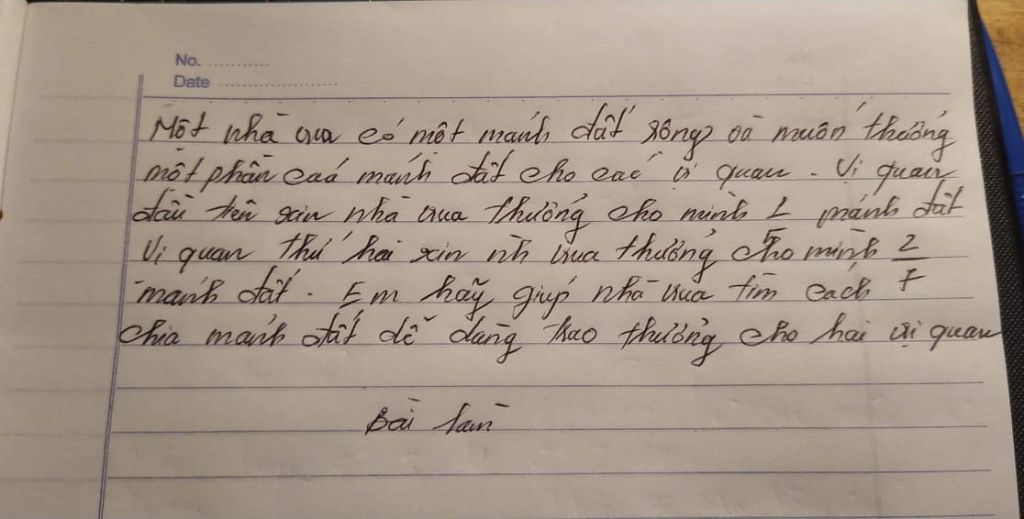 No. ............
Date ........................
Một nhà vua có một mảnh đất rộng và muốn thưởng
một phần của mảnh đất cho các vị quan. Vị quan
đầu tiên xin nhà vua thưởng cho mình 1/5 mảnh đất
Vị quan thứ hai xin nh vua thưởng cho mình 2/7
mảnh đất. Em hãy giúp nhà vua tìm cách
chia mảnh đất dễ dàng trao thưởng cho hai vị quan
Bài làm